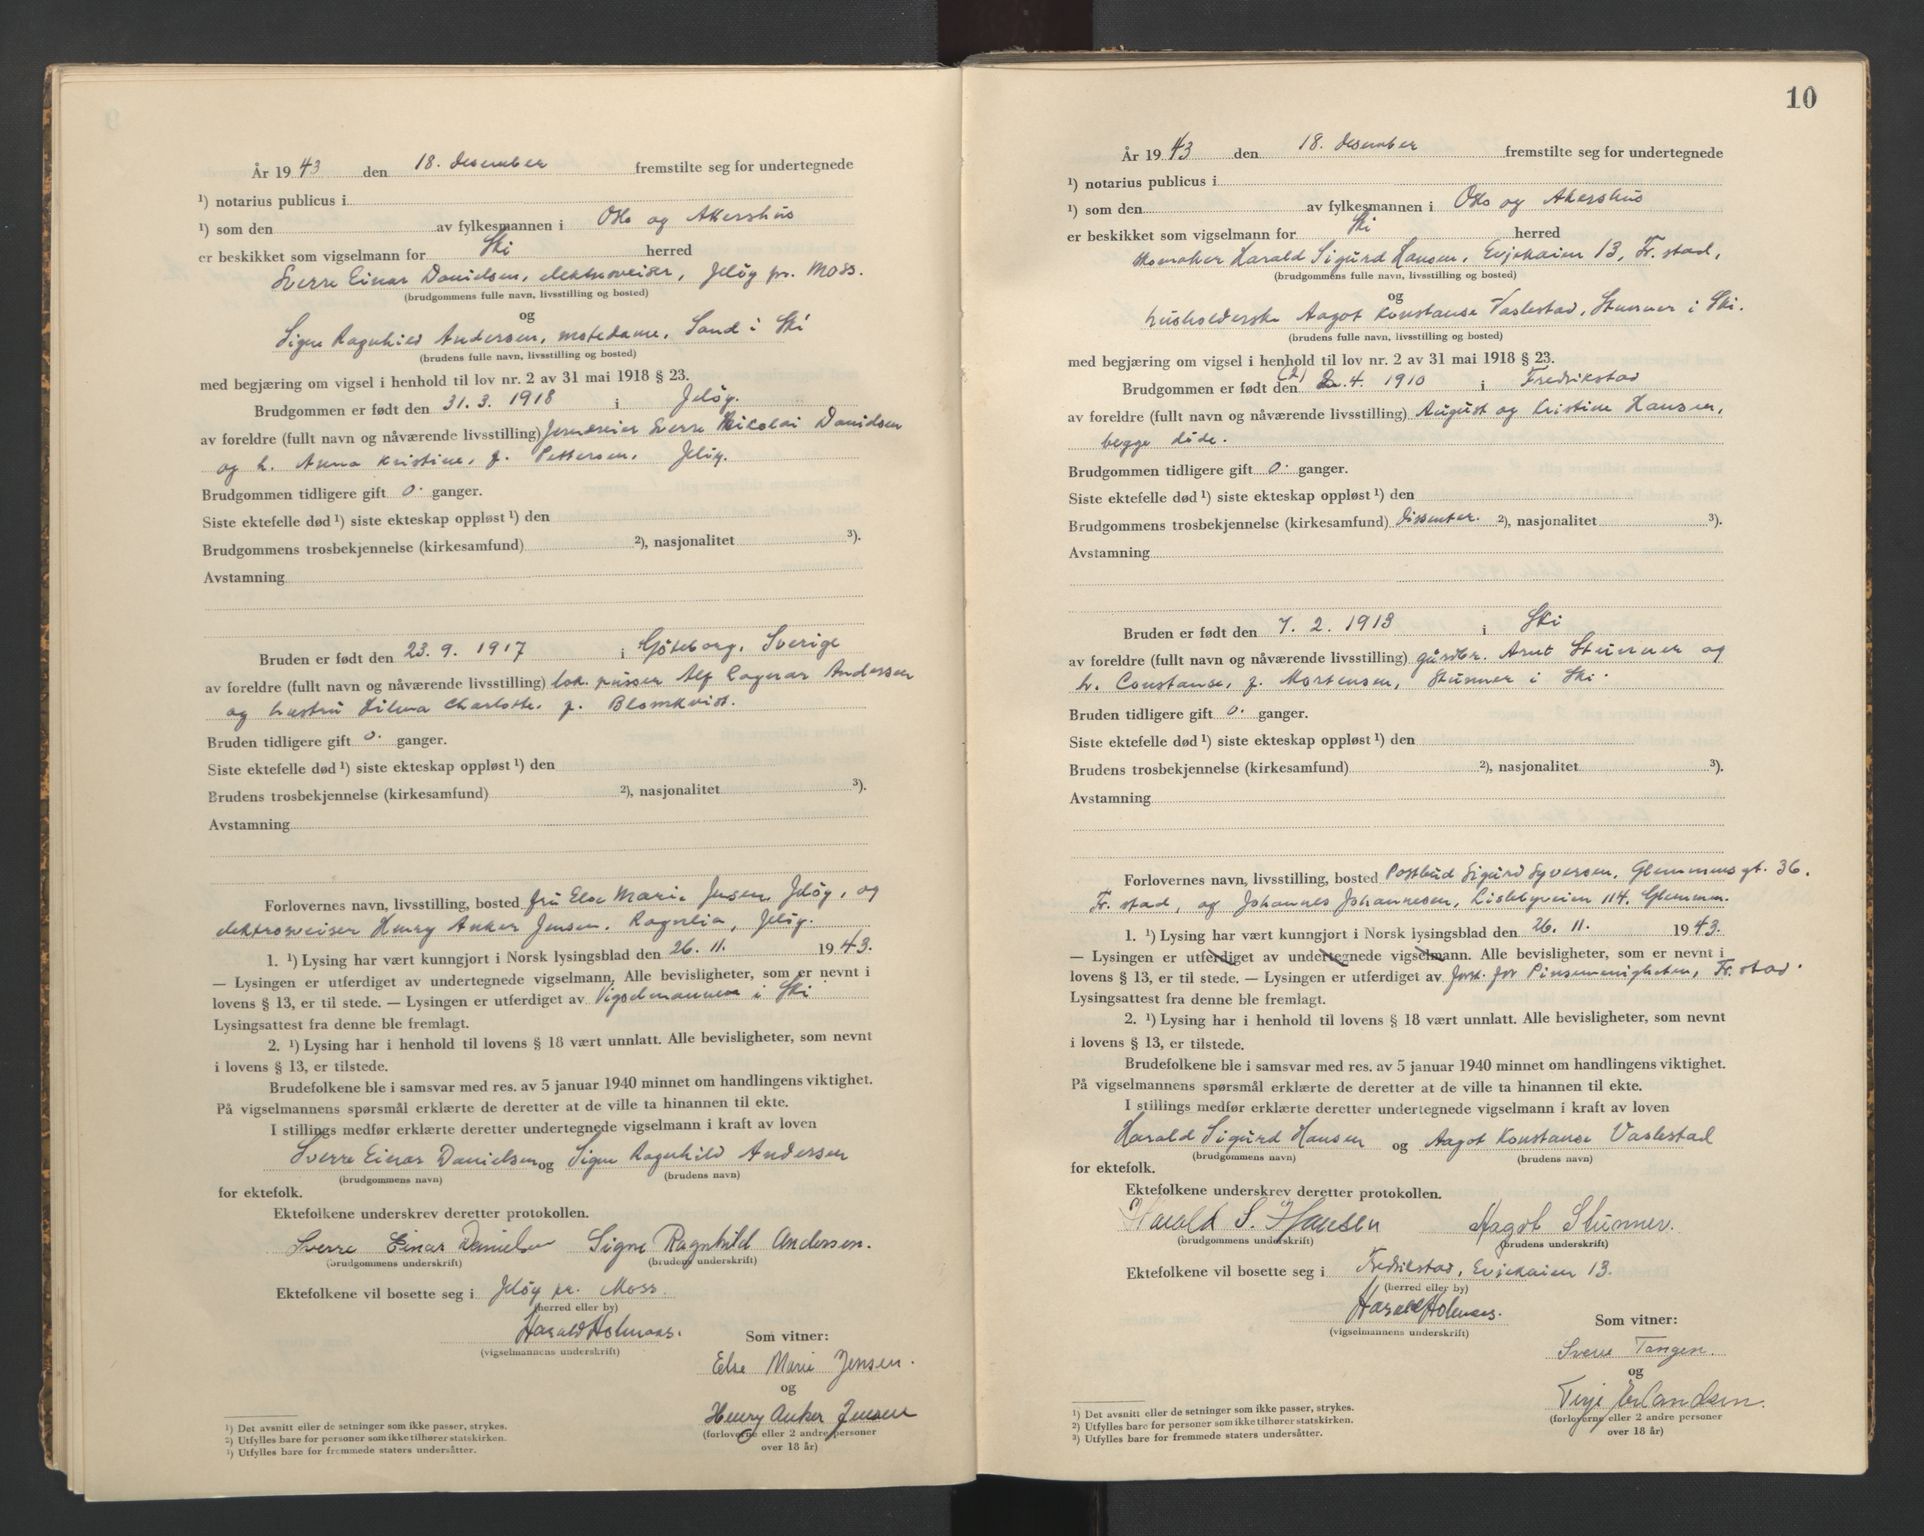 År 1943 den 18. desember fremstilte seg for undertegnede
¹) notarius publicus i
¹) som den av fylkesmannen i Oslo og Akershus
er beskikket som vigselmann for Ski herred
Sverre Einar Danielsen, elektrosveiser, Jeløy pr. Moss.
(brudgommens fulle navn, livsstilling og bosted)
og
Signe Ragnhild Andersen, motedame, Sand i Ski
(brudens fulle navn, livsstilling og bosted)
med begjæring om vigsel i henhold til lov nr. 2 av 31 mai 1918 § 23.
Brudgommen er født den 31. 3. 1918 i Jeløy.
av foreldre (fullt navn og nåværende livsstilling) Sverre Nikolai Danielsen
og h. Anna Kristine, f. Pettersen, Jeløy.
Brudgommen tidligere gift 0. ganger.
Siste ektefelle død ¹) siste ekteskap oppløst ¹) den
Brudgommens trosbekjennelse (kirkesamfund) ²), nasjonalitet ³).
Avstamning
Bruden er født den 23. 9. 1917 i Gøteborg, Sverige
av foreldre (fullt navn og nåværende livsstilling) lok. pusser Alf Ragnar Andersen
og hustru Hilma Charlotte. f. Blomkvist.
Bruden tidligere gift 0. ganger.
Siste ektefelle død ¹) siste ekteskap oppløst ¹) den
Brudens trosbekjennelse (kirkesamfund) ²), nasjonalitet ³).
Avstamning
Forlovernes navn, livsstilling, bosted fru Else Marie Jensen, Jeløy, og
elektrosveiser Henry Anker Jensen, Rognlia, Jeløy.
1. ¹) Lysing har vært kunngjort i Norsk lysingsblad den 26. 11. 1943.
— Lysingen er utferdiget av undertegnede vigselmann. Alle bevisligheter, som er nevnt i
lovens § 13, er til stede. — Lysingen er utferdiget av Vigselmannen i Ski
Lysingsattest fra denne ble fremlagt.
2. ¹) Lysing har i henhold til lovens § 18 vært unnlatt. Alle bevisligheter, som nevnt
i lovens § 13, er tilstede.
Brudefolkene ble i samsvar med res. av 5 januar 1940 minnet om handlingens viktighet.
På vigselmannens spørsmål erklærte de deretter at de ville ta hinannen til ekte.
I stillings medfør erklærte deretter undertegnede vigselmann i kraft av loven
Sverre Einar Danielsen og Signe Ragnhild Andersen
(brudgommens navn) (brudens navn)
for ektefolk.
Ektefolkene underskrev deretter protokollen.
Sverre Einar Danielsen Signe Ragnhild Andersen.
(brudgommens underskrift) (brudens underskrift)
Ektefolkene vil bosette seg i Jeløy pr. Moss.
(herred eller by)
Harald Holmaas.
(vigselmannens underskrift)
Som vitner:
Else Marie Jensen.
og
Henry Anker Jensen
(forloverne eller 2 andre personer
over 18 år)
¹) Det avsnitt eller de setninger som ikke passer, strykes.
²) Utfylles bare for personer som ikke tilhører statskirken.
³) Utfylles bare for fremmede staters undersåtter.
10
År 1943 den 18. desember fremstilte seg for undertegnede
¹) notarius publicus i
¹) som den av fylkesmannen i Oslo og Akershus
er beskikket som vigselmann for Ski herred
Skomaker Harald Sigurd Hansen, Evjekaien 13, Fr. stad,
(brudgommens fulle navn, livsstilling og bosted)
og
husholderske Aagot Konstanse Vaslestad, Stunner i Ski.
(brudens fulle navn, livsstilling og bosted)
med begjæring om vigsel i henhold til lov nr. 2 av 31 mai 1918 § 23.
Brudgommen er født den (2) 2. 4. 1910 i Fredrikstad
av foreldre (fullt navn og nåværende livsstilling) August og Kristine Hansen,
begge døde.
Brudgommen tidligere gift 0. ganger.
Siste ektefelle død ¹) siste ekteskap oppløst ¹) den
Brudgommens trosbekjennelse (kirkesamfund) dissenter. ²), nasjonalitet ³).
Avstamning
Bruden er født den 7. 2. 1913 i Ski
av foreldre (fullt navn og nåværende livsstilling) gårdbr. Arnt Stunner og
h. Constanse, f. Mortensen, Stunner i Ski.
Bruden tidligere gift 0. ganger.
Siste ektefelle død ¹) siste ekteskap oppløst ¹) den
Brudens trosbekjennelse (kirkesamfund) ²), nasjonalitet ³).
Avstamning
Forlovernes navn, livsstilling, bosted Postbud Sigurd Syversen, Glemmensgt. 36.
Fr. stad, og Johannes Johannesen, Lislebyveien 114, Glemmen.
1. ¹) Lysing har vært kunngjort i Norsk lysingsblad den 26. 11. 1943.
— Lysingen er utferdiget av undertegnede vigselmann. Alle bevisligheter, som er nevnt i
lovens § 13, er til stede. — Lysingen er utferdiget av forst. for Pinsemenigheten, Fr. stad.
Lysingsattest fra denne ble fremlagt.
2. ¹) Lysing har i henhold til lovens § 18 vært unnlatt. Alle bevisligheter, som nevnt
i lovens § 13, er tilstede.
Brudefolkene ble i samsvar med res. av 5 januar 1940 minnet om handlingens viktighet.
På vigselmannens spørsmål erklærte de deretter at de ville ta hinannen til ekte.
I stillings medfør erklærte deretter undertegnede vigselmann i kraft av loven
Harald Sigurd Hansen og Aagot Konstanse Vaslestad
(brudgommens navn) (brudens navn)
for ektefolk.
Ektefolkene underskrev deretter protokollen.
Harald S. Hansen Aagot Stunner.
(brudgommens underskrift) (brudens underskrift)
Ektefolkene vil bosette seg i Fredrikstad, Evjekaien 13.
(herred eller by)
Harald Holmaas.
(vigselmannens underskrift)
Som vitner:
Sverre Tangen.
og
Terje Erlandsen.
(forloverne eller 2 andre personer
over 18 år)
¹) Det avsnitt eller de setninger som ikke passer, strykes.
²) Utfylles bare for personer som ikke tilhører statskirken.
³) Utfylles bare for fremmede staters undersåtter.